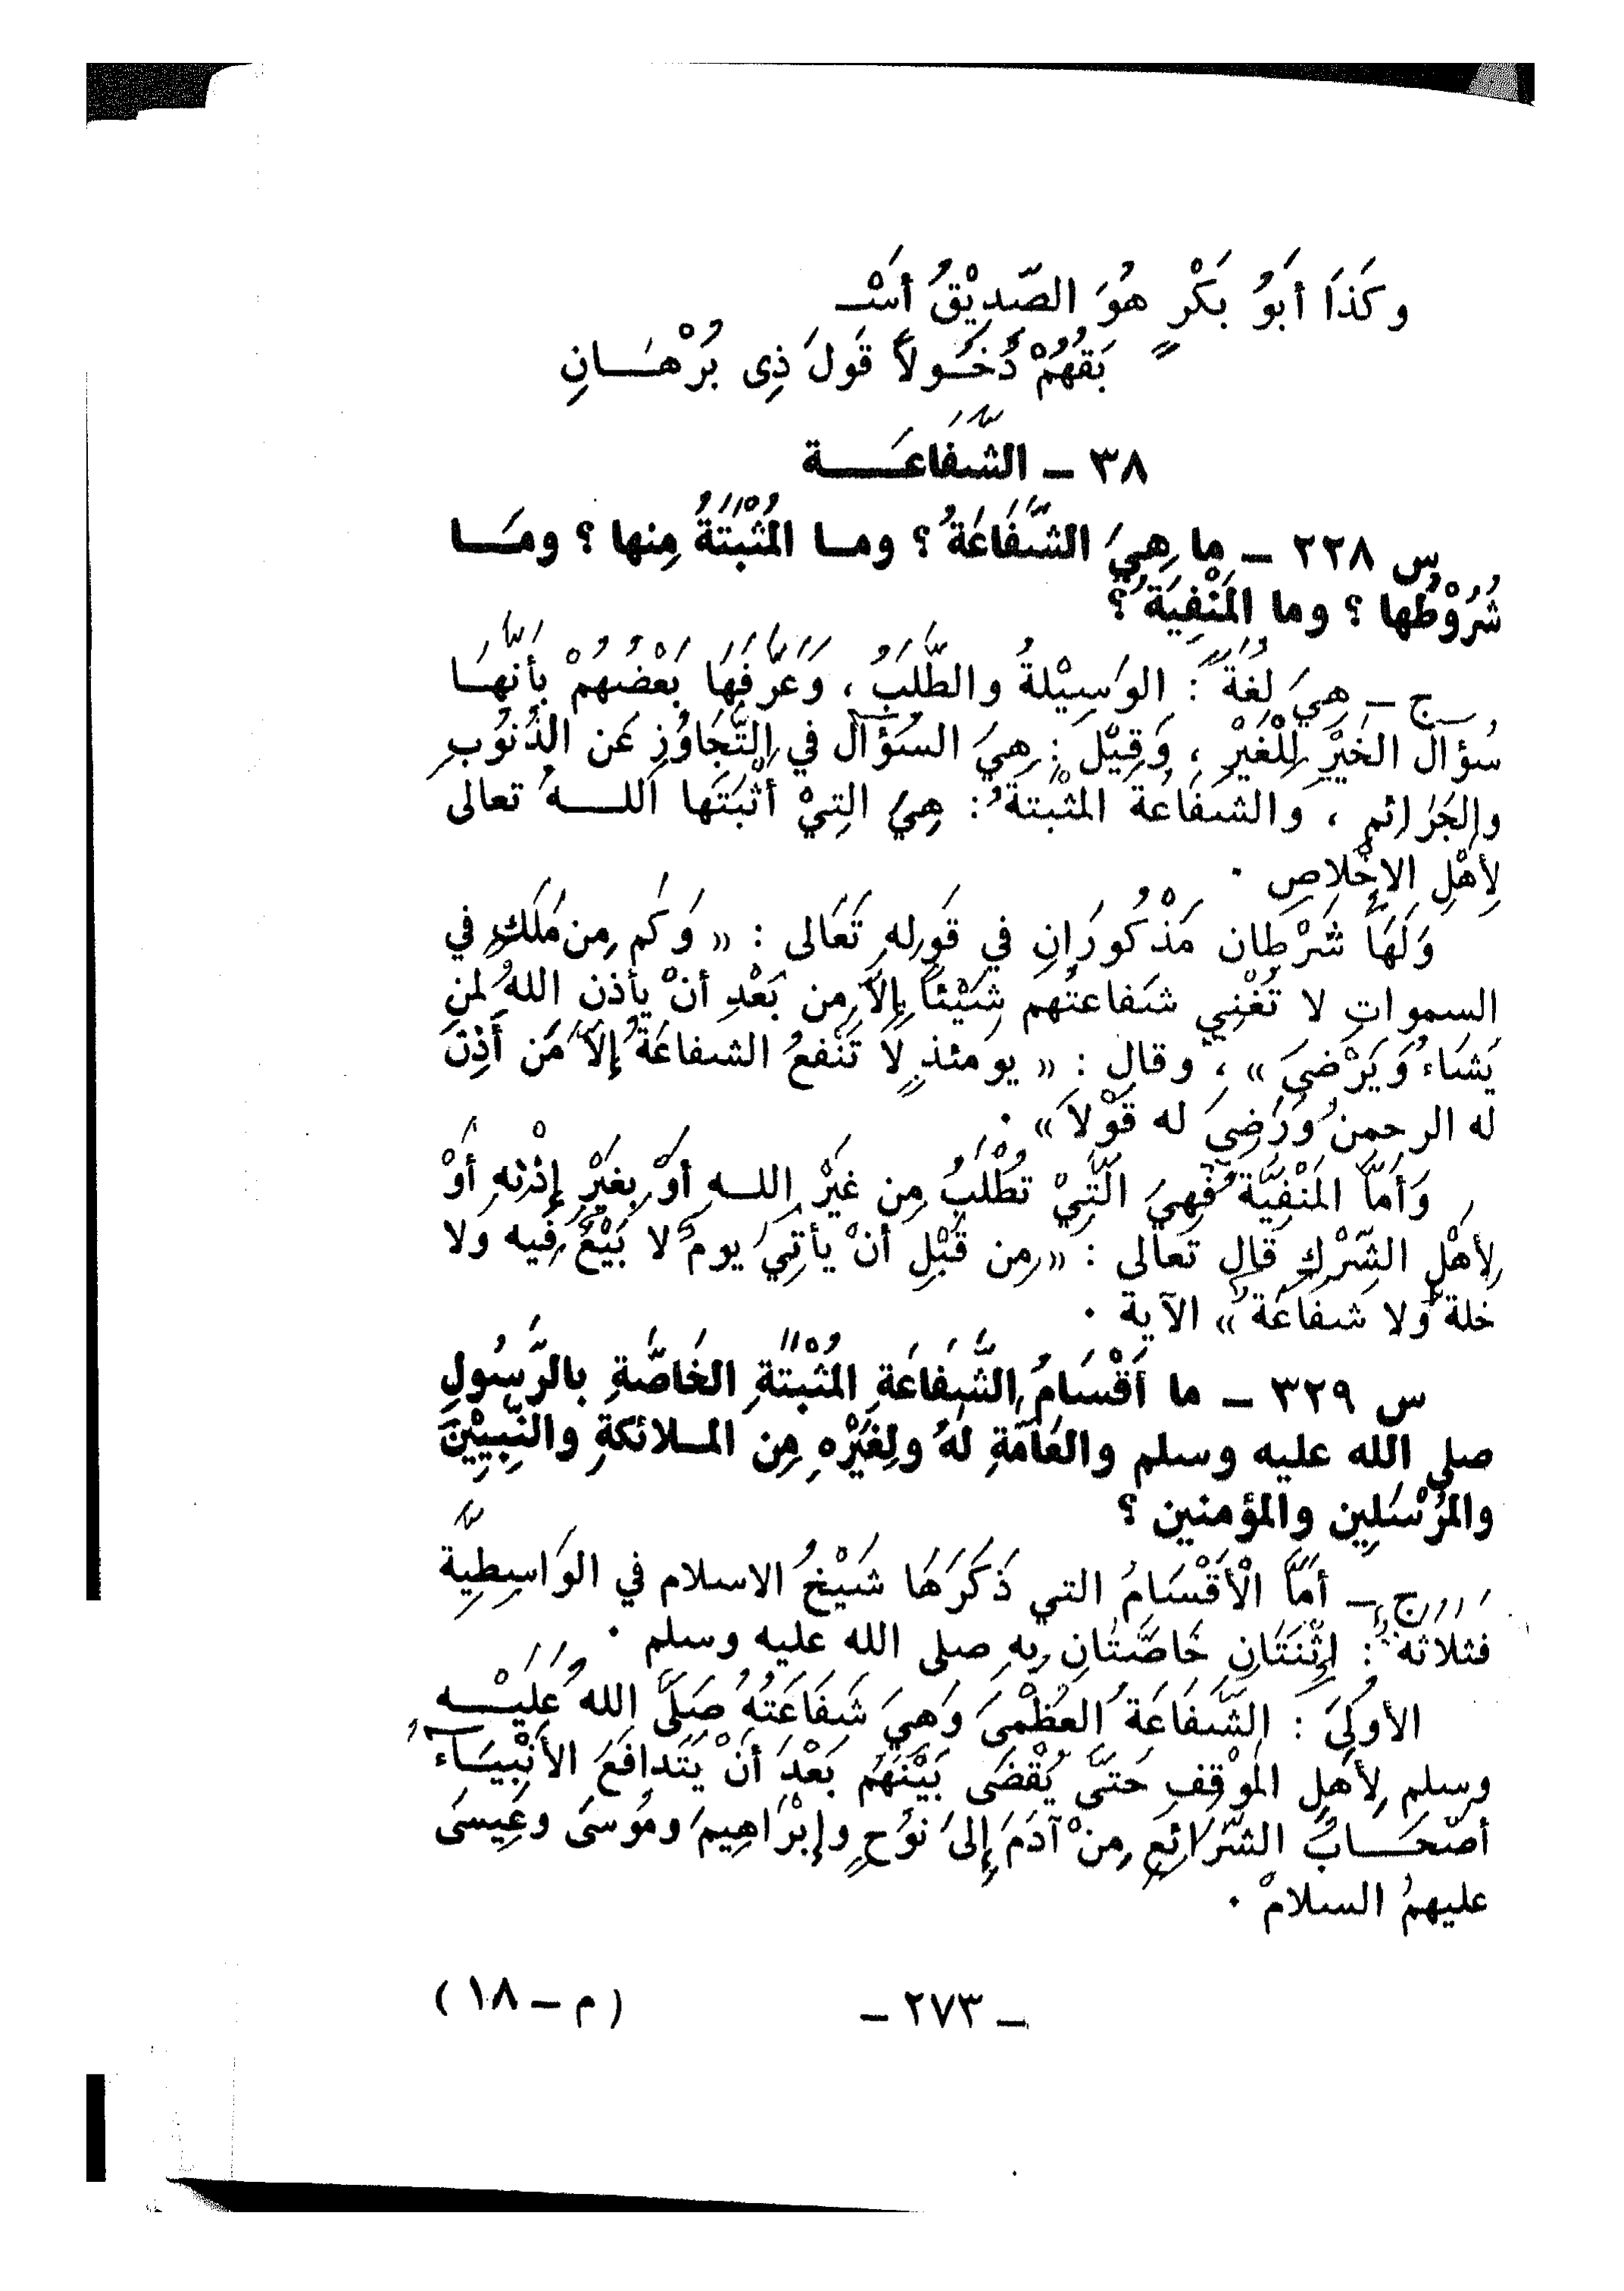 وكَذَا أَبوُ بَكْرٍ هُوَ الصّدِيْقُ أَسْـ
بَقهُمْ دُخـُـولاً قَولَ ذِى بُرْهـَـــانِ
٣٨ ــ الشَّفاعَــــــة
س ٢٢٨ ــ ما هِيَ الشَّفَاعَةُ ؟ ومــا المُثْبَتَةُ مِنها ؟ ومَـــا
شُرُوْطُها ؟ وما المَنْفِيَةُ ؟
ج ــ هِيَ لُغَةً : الوَسِيْلةُ والطَّلَبُ ، وَعَرَّفَهَا بَعْضُهُمْ بأَنَّهـَـا
سُؤالُ الخَيْرِ لِلْغَيْرِ ، وَقِيْلَ : هِيَ السُؤَالُ في التَّجَاوُزِ عَن الذُنُوبِ
والجَرَائمِ ، والشفَاعَةُ المثْبتةُ : هِيَ التِيْ أَثْبَتَها اللــــهُ تعالى
لِأَهْلِ الإخْلاصِ ·
وَلَهَا شَرْطان مَذْكُورَانِ في قَولهِ تَعَالى : « وَكَم مِن مَلَكٍ في
السمواتِ لا تُغْنِي شفاعتُهم شَيْئاً إلاَّ مِن بَعْدِ أنْ يأذن اللهُ لمن
يَشاءُ وَيَرْضىَ » ، وقال : « يومئذٍ لاَ تَنْفعُ الشفاعَةُ إلاَّ مَن أَذِنَ
له الرحمنُ وَرَضِيَ له قَوْلاً » ·
وَأَمَّا المَنْفِيَّةُ فَهِيَ الَّتِيْ تُطْلَبُ مِن غَيْرِ اللــهِ أَوْ بِغَيْرِ إذْنهِ أَوْ
لِأَهْلِ الشِّرْكِ قال تعالى : « مِن قَبْلِ أنْ يأتِيَ يومٌ لا بَيْعٌ فيه ولا
خلةٌ ولا شفاعَةٌ » الآية ·
س ٣٢٩ ــ ما أَقْسَامُ الشَّفَاعَةِ المُثْبَتَةِ الخَاصَّةِ بالرَّسُولِ
صلى الله عليه وسلم والعَامَّةِ لَهُ ولِغَيْرِهِ مِن المــلائكةِ والنَّبِيِيْنَ
والمُرْسَلِين والمؤمنين ؟
ج ــ أَمَّا الْأَقْسَامُ التي ذَكَرَهَا شَيْخُ الاسلام في الوَاسِطِيَّة
فثلاثةٌ : اثْنَتَانِ خَاصَّتَانِ بِهِ صلى الله عليه وسلم ·
الأوُلىَ : الشَّفَاعَةُ العُظْمىَ وَهِيَ شَفَاعَتُهُ صَلَّى اللهُ عَلَيْــــهِ
وسلم لِأَهلِ المَوْقِفِ حَتىَّ يُقْضَى بَيْنَهُم بَعْدَ أنْ يَتَدافَعَ الأَنْبِيَــاءُ
أَصْحَـــابُ الشَّرَائعِ مِنْ آدَمَ إلىَ نوُحٍ وإبْرَاهِيمَ ومُوسَى وعِيسَى
عليهمُ السلامُ ·
ــ ٢٧٣ ــ
( م ــ ١٨ )